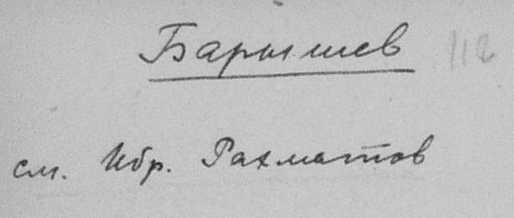 Барышев 112
см. Ибр. Рахматов